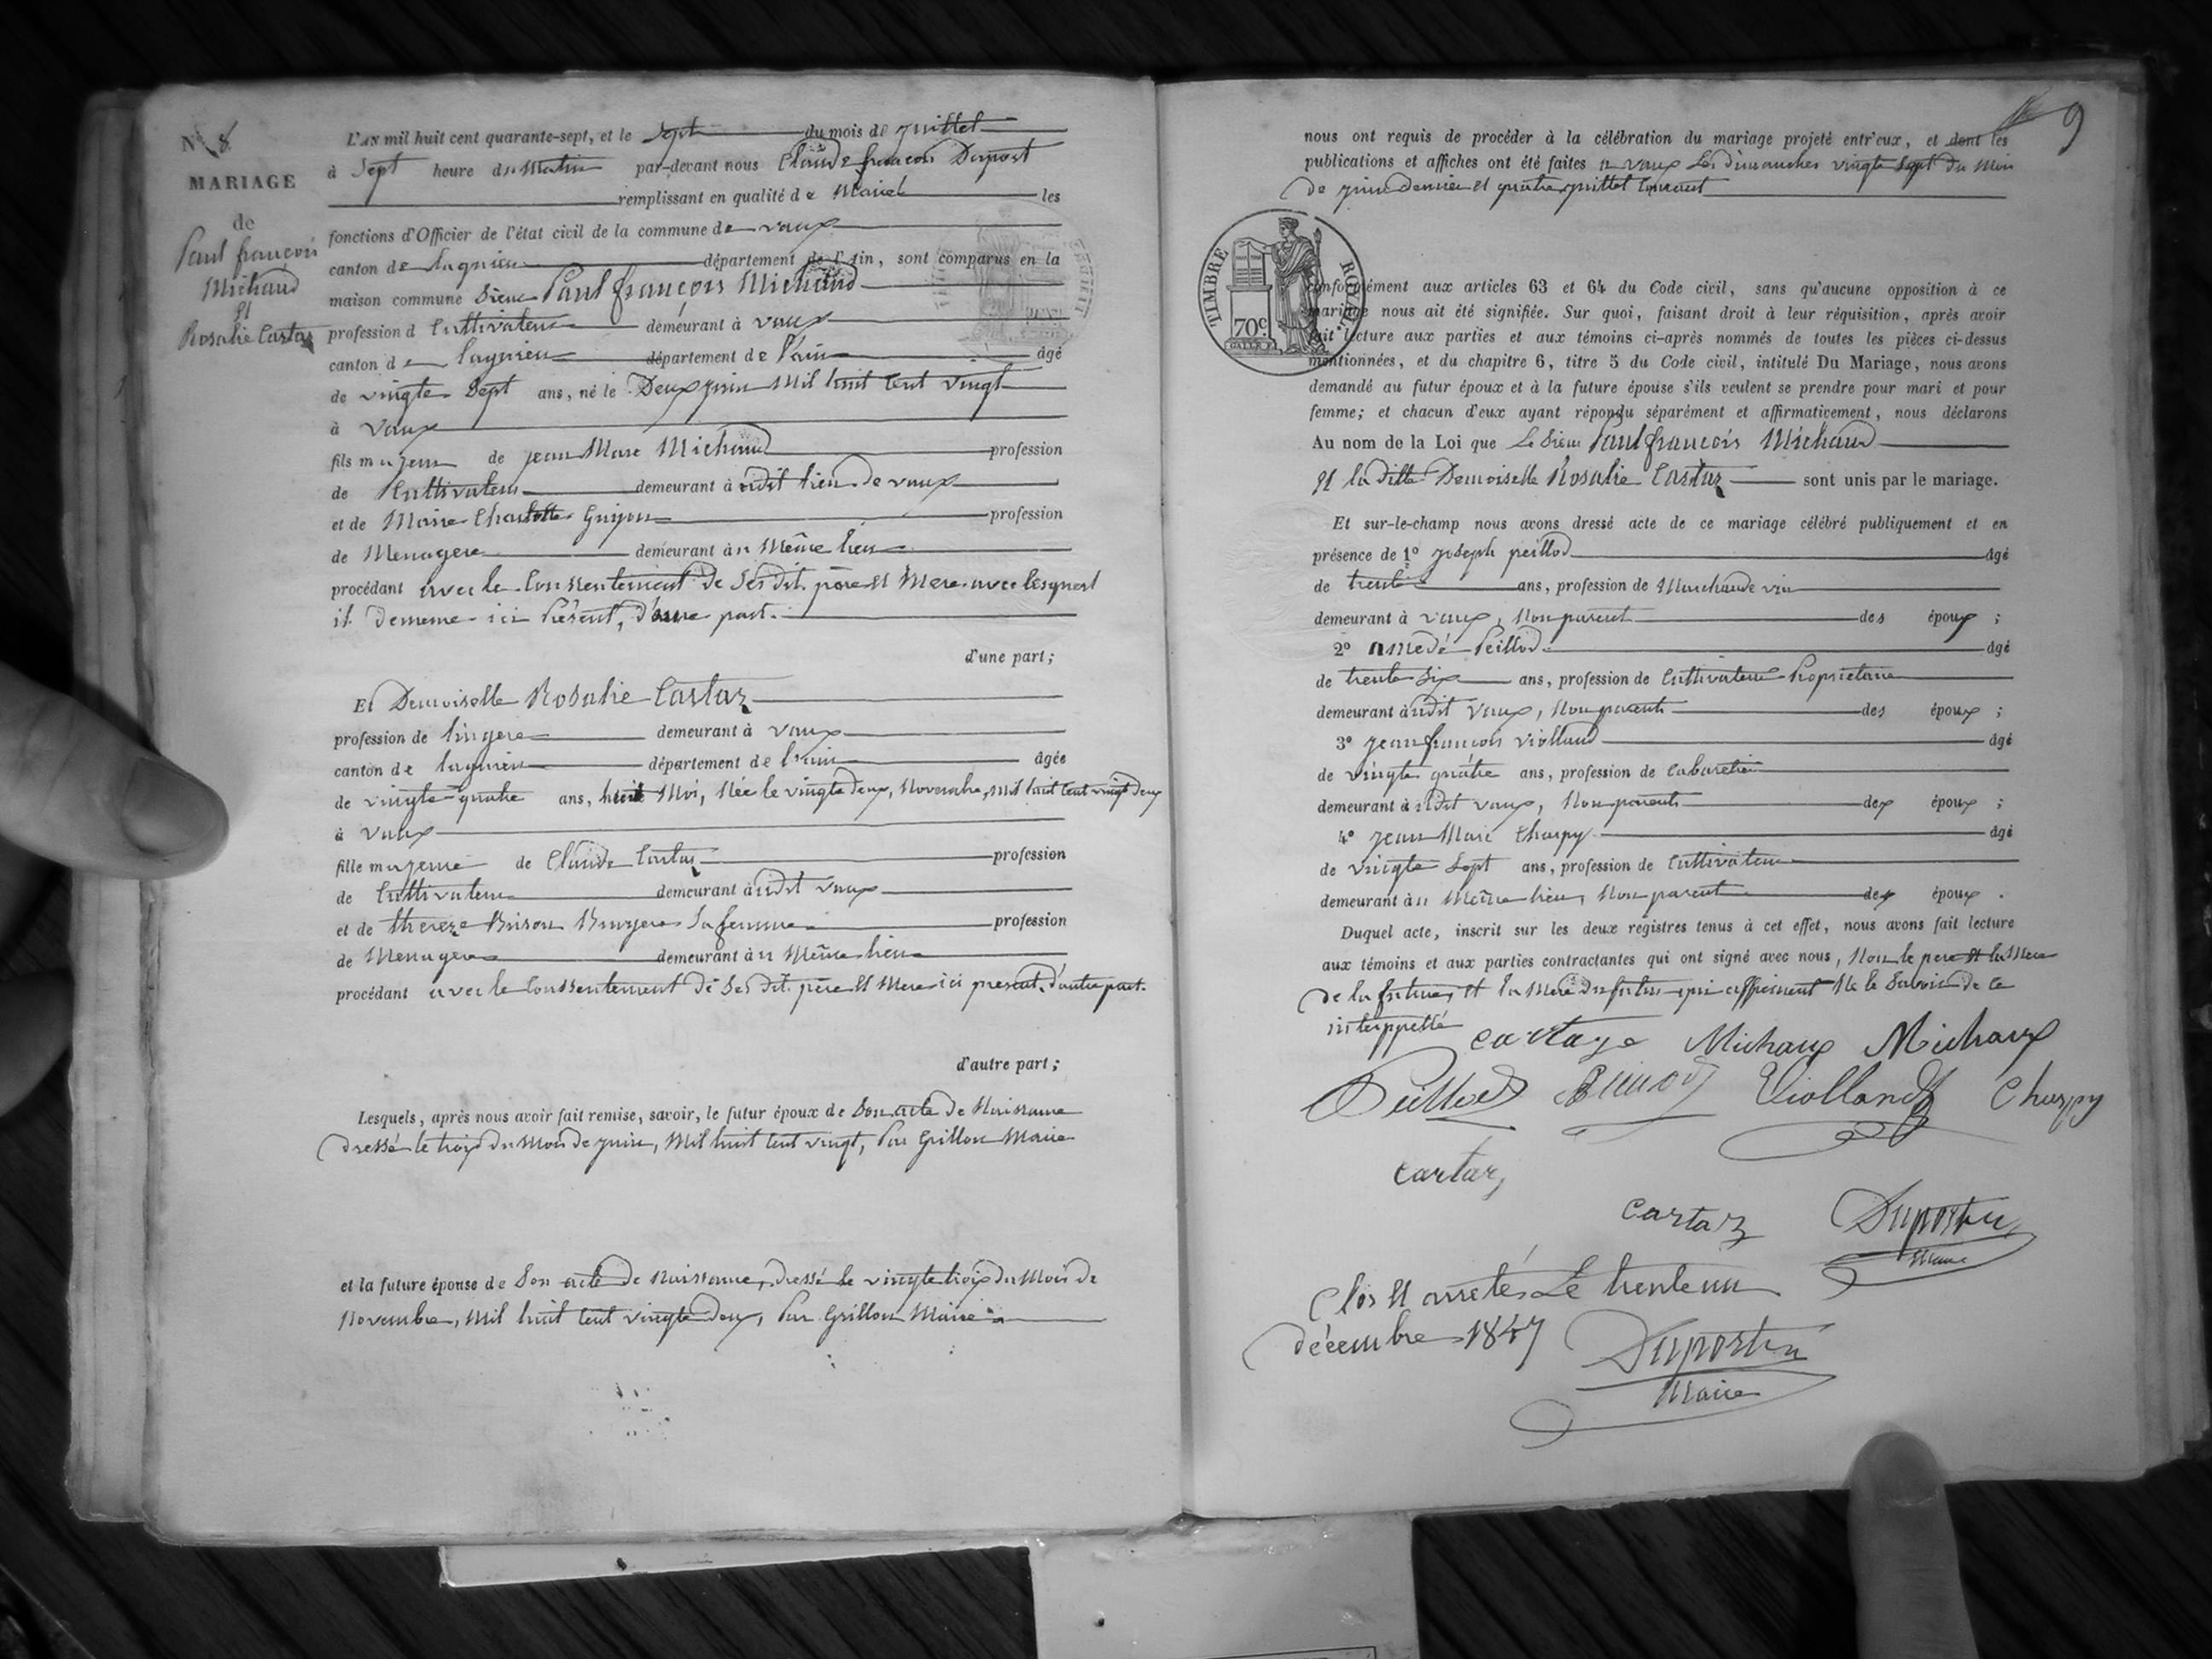 N° 8.
MARIAGE
de
Paul françois
Michaud
Et
Rosalie Cartaz
L'AN mil huit cent quarante-sept, et le Sept du mois de juillet
à Sept heure du Matin par-devant nous Claude françois Duport
remplissant en qualité de Maire les
fonctions d'Officier de l'état civil de la commune de vaux
canton de Lagnieu département de l'Ain, sont comparus en la
maison commune Sieur Paul françois Michaud
profession d Cultivateur demeurant à vaux
canton de Lagnieu département de l'ain âgé
de vingte Sept ans, né le Deux juin Mil huit Cent vingt
à Vaux
fils majeur de jean Marc Michaud profession
de Cultivateur demeurant à udit lieu de vaux
et de Marie Charlotte Guyon profession
de Menagere demeurant à u Même lieu
procédant avec le Conssentement de Ses dit père et Mere avec lesquest
il demeure ici Présent, d'une part.
d'une part;
Et Demoiselle Rosalie Cartaz
profession de lingere demeurant à vaux
canton de lagnieu département de l'ain âgée
de vingte quatre ans, huit Moi, Née le vingte deux, Novembre, Mil huit Cent vingt deux
à vaux
fille majeure de Claude Cartaz profession
de Cultivateur demeurant à udit vaux
et de thereze Brison Bruyere Sa femme profession
de Menagere demeurant à u Même lieu
procédant avec le Conssentement de Ses dit père Et Mere ici présent, d'autre part.
d'autre part;
Lesquels, après nous avoir fait remise, savoir, le futur époux de Son acte de Naissance
dressé le trois du Mois de juin, Mil huit Cent vingt, Par Grillon Maire
et la future épouse de Son acte de Naissance, dressé le vingte trois du Mois de
Novembre, Mil huit Cent vingte deux, Par Grillon Maire
9
nous ont requis de procéder à la célébration du mariage projeté entr'eux, et dont les
publications et affiches ont été faites a vaux Les dimanches vingte Sept du Mois
de juin dernier et quatre juillet Courant
TIMBRE ROYAL
70c.
conformément aux articles 63 et 64 du Code civil, sans qu'aucune opposition à ce
mariage nous ait été signifiée. Sur quoi, faisant droit à leur réquisition, après avoir
fait lecture aux parties et aux témoins ci-après nommés de toutes les pièces ci-dessus
mentionnées, et du chapitre 6, titre 5 du Code civil, intitulé Du Mariage, nous avons
demandé au futur époux et à la future épouse s'ils veulent se prendre pour mari et pour
femme; et chacun d'eux ayant répondu séparément et affirmativement, nous déclarons
Au nom de la Loi que Le Sieur Paul françois Michaud
Et la ditte Demoiselle Rosalie Cartaz sont unis par le mariage.
Et sur-le-champ nous avons dressé acte de ce mariage célébré publiquement et en
présence de 1° joseph peillod âgé
de trente ans, profession de Marchand de vin
demeurant à vaux, Non parent des époux ;
2° amedé Peillod âgé
de trente Six ans, profession de Cultivateur Propriétaire
demeurant à udit Vaux, Non parents des époux ;
3° jean françois violland âgé
de vingte quatre ans, profession de Cabaretier
demeurant à udit vaux, Non parents des époux ;
4° jean Marc Charpy âgé
de vingte Sept ans, profession de Cultivateur
demeurant à u Même lieu, Non parent des époux .
Duquel acte, inscrit sur les deux registres tenus à cet effet, nous avons fait lecture
aux témoins et aux parties contractantes qui ont signé avec nous, Non le pere Et la Mere
de la future, Et la Mere du futur qui affirment Ne le Savoir de ce
interppellé
cartaze Michaux Michaux
Peillod Violland Charpy
cartaz
Cartaz Duport
Maire
Clos Et arretés Le trente un
décembre 1847 Duport
Maire